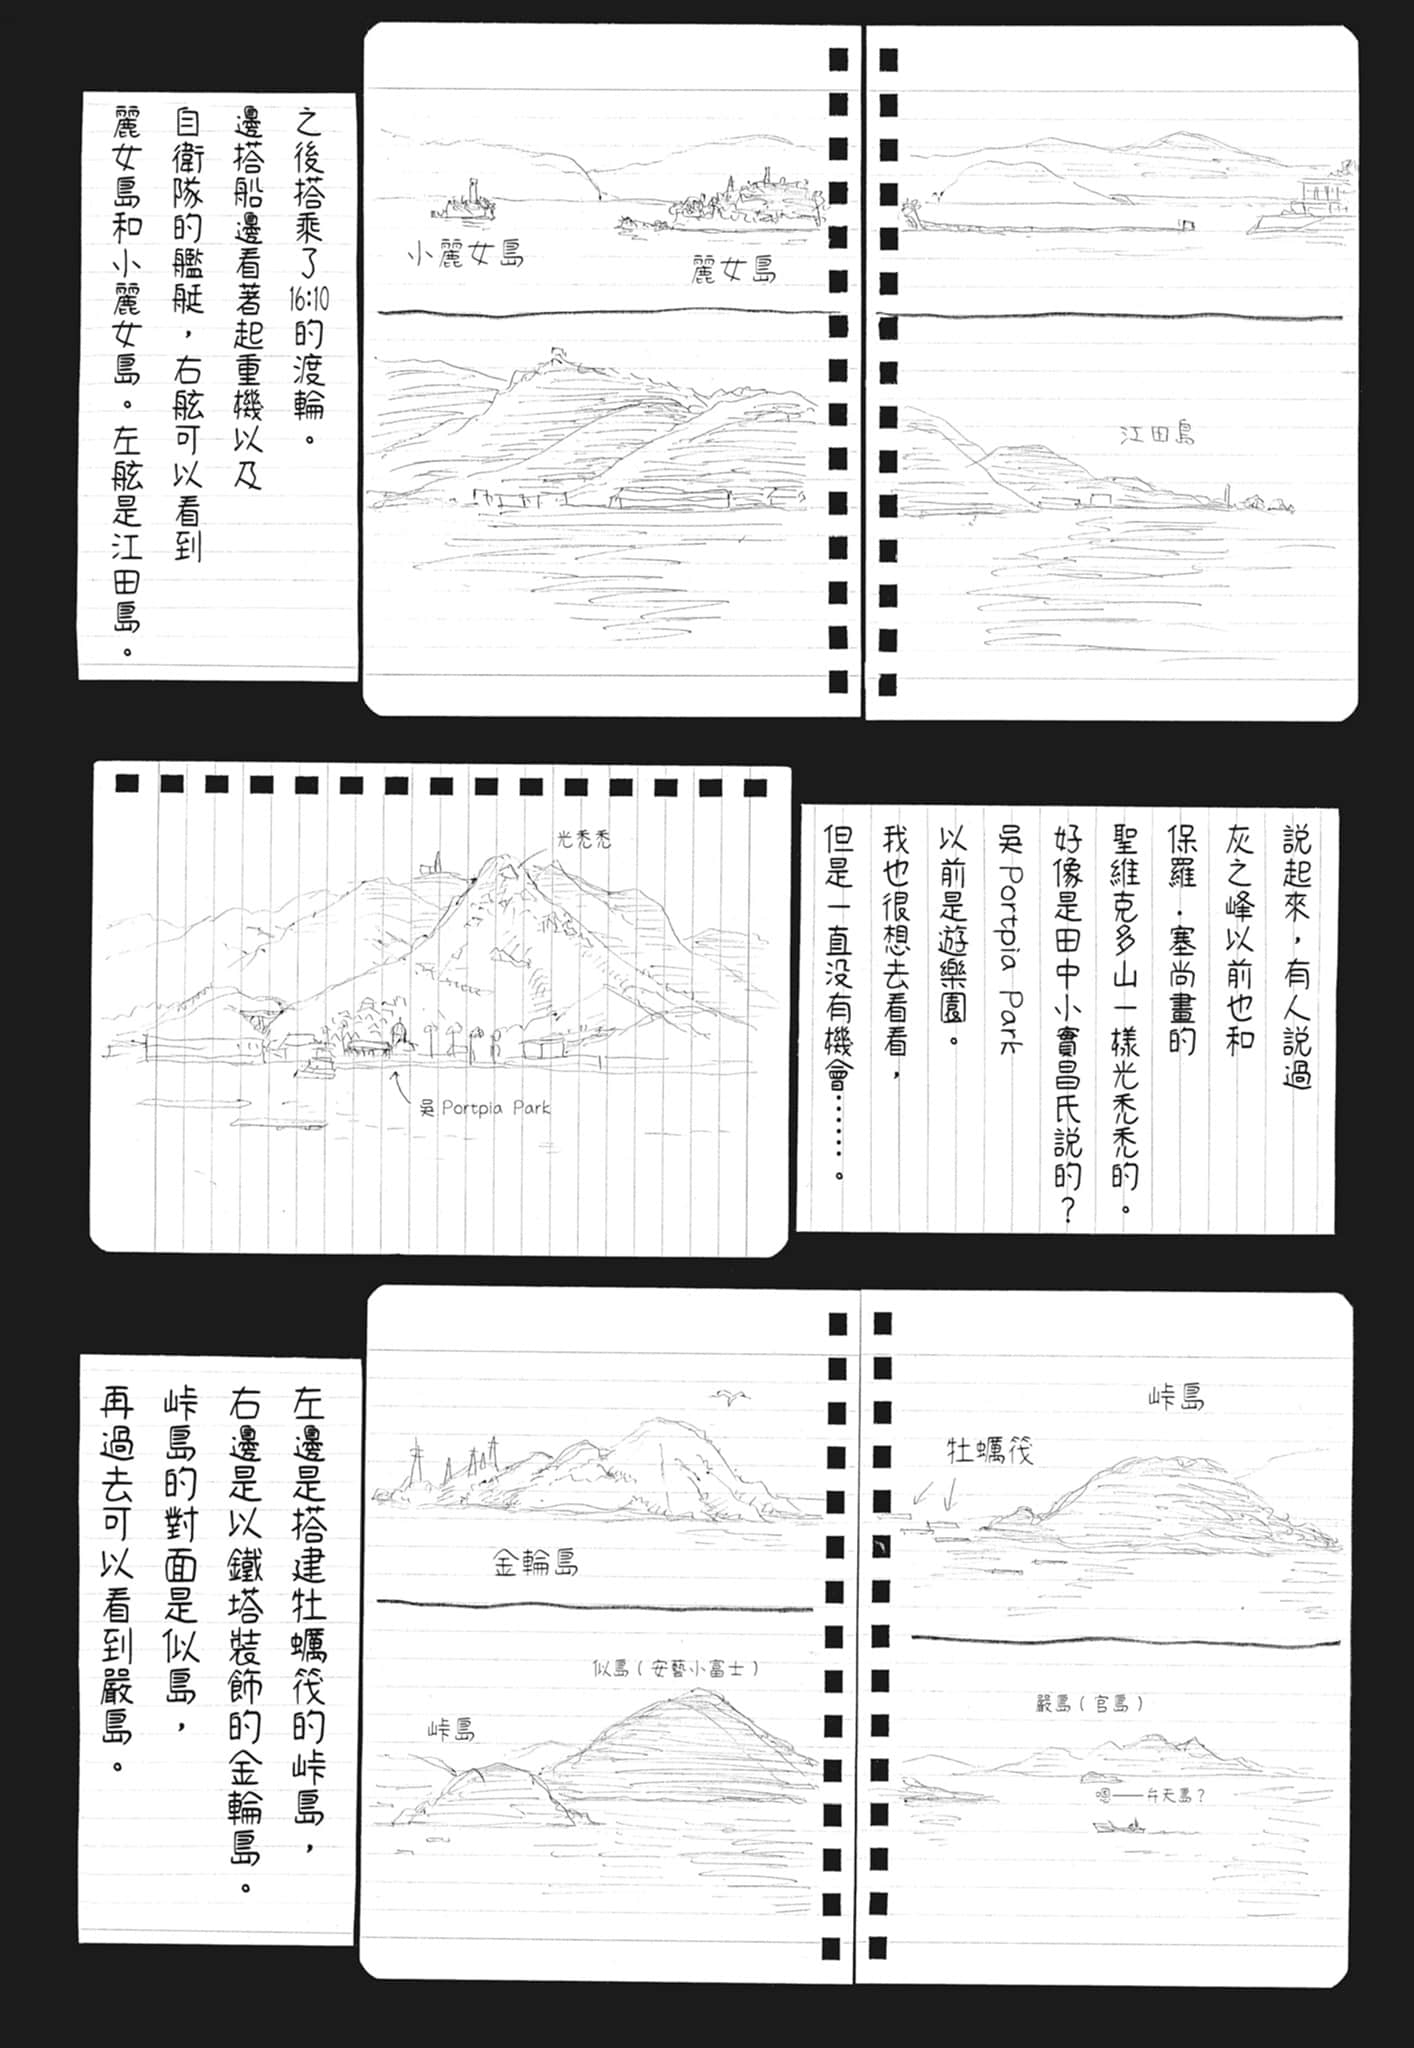 之後搭乘了16:10的渡輪。
邊搭船邊看著起重機以及
自衛隊的艦艇，右舷可以看到
麗女島和小麗女島。左舷是江田島。
小麗女島
麗女島
江田島
說起來，有人說過
灰之峰以前也和
保羅．塞尚畫的
聖維克多山一樣光禿禿的。
好像是田中小實昌氏說的？
吳 Portpia Park
以前是遊樂園。
我也很想去看看，
但是一直沒有機會……。
光禿禿
吳 Portpia Park
左邊是搭建牡蠣筏的峠島，
右邊是以鐵塔裝飾的金輪島。
峠島的對面是似島，
再過去可以看到嚴島。
金輪島
峠島
牡蠣筏
似島（安藝小富士）
峠島
嚴島（宮島）
嗯——弁天島？